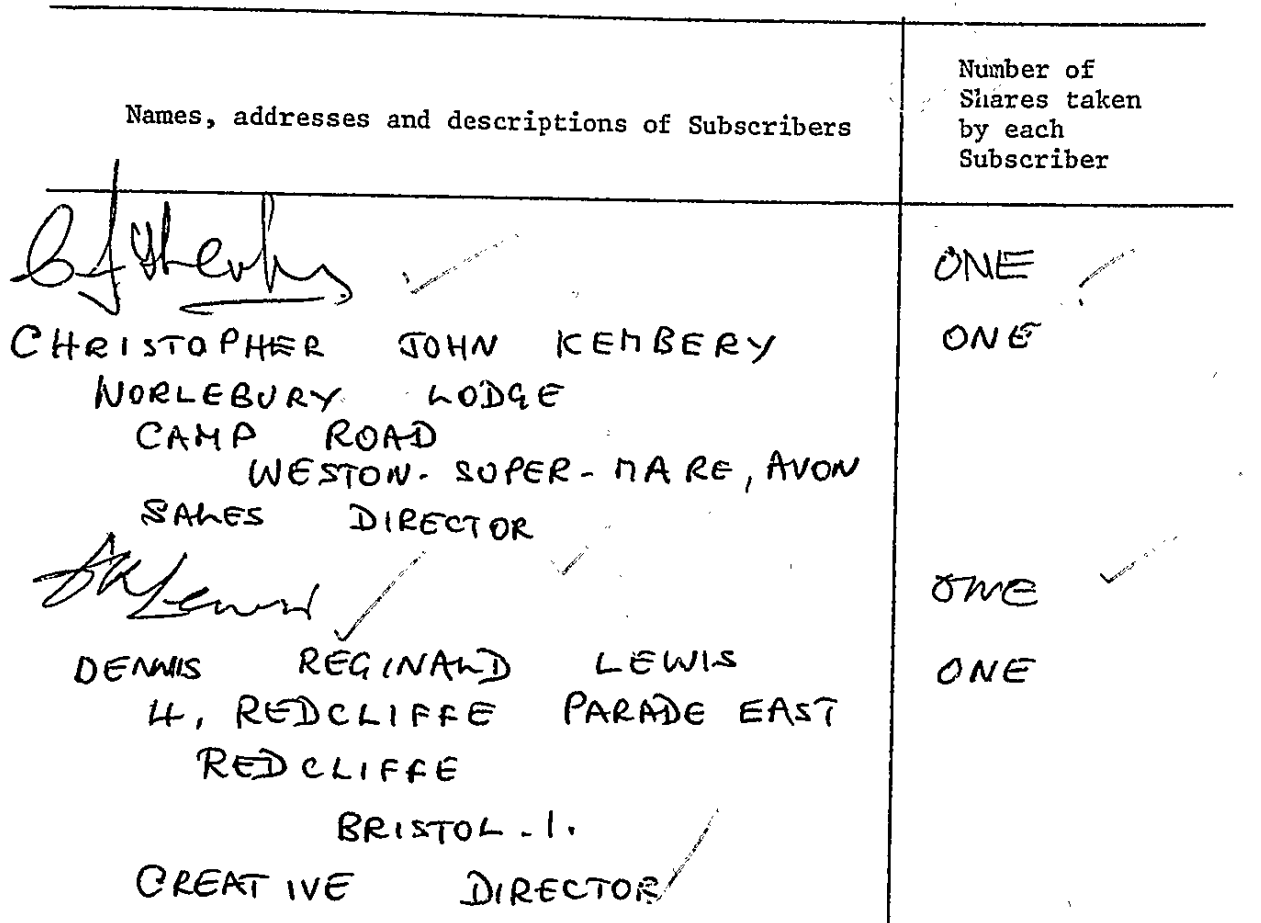 Names, addresses and descriptions of Subscribers
Number of
Shares taken
by each
Subscriber
ONE
CHRISTOPHER JOHN KEMBERY ONE
NORLEBURY LODGE
CAMP ROAD
WESTON-SUPER-MARE, AVON
SALES DIRECTOR
D R Lewis ONE
DENNIS REGINALD LEWIS ONE
4, REDCLIFFE PARADE EAST
REDCLIFFE
BRISTOL-1.
CREATIVE DIRECTOR